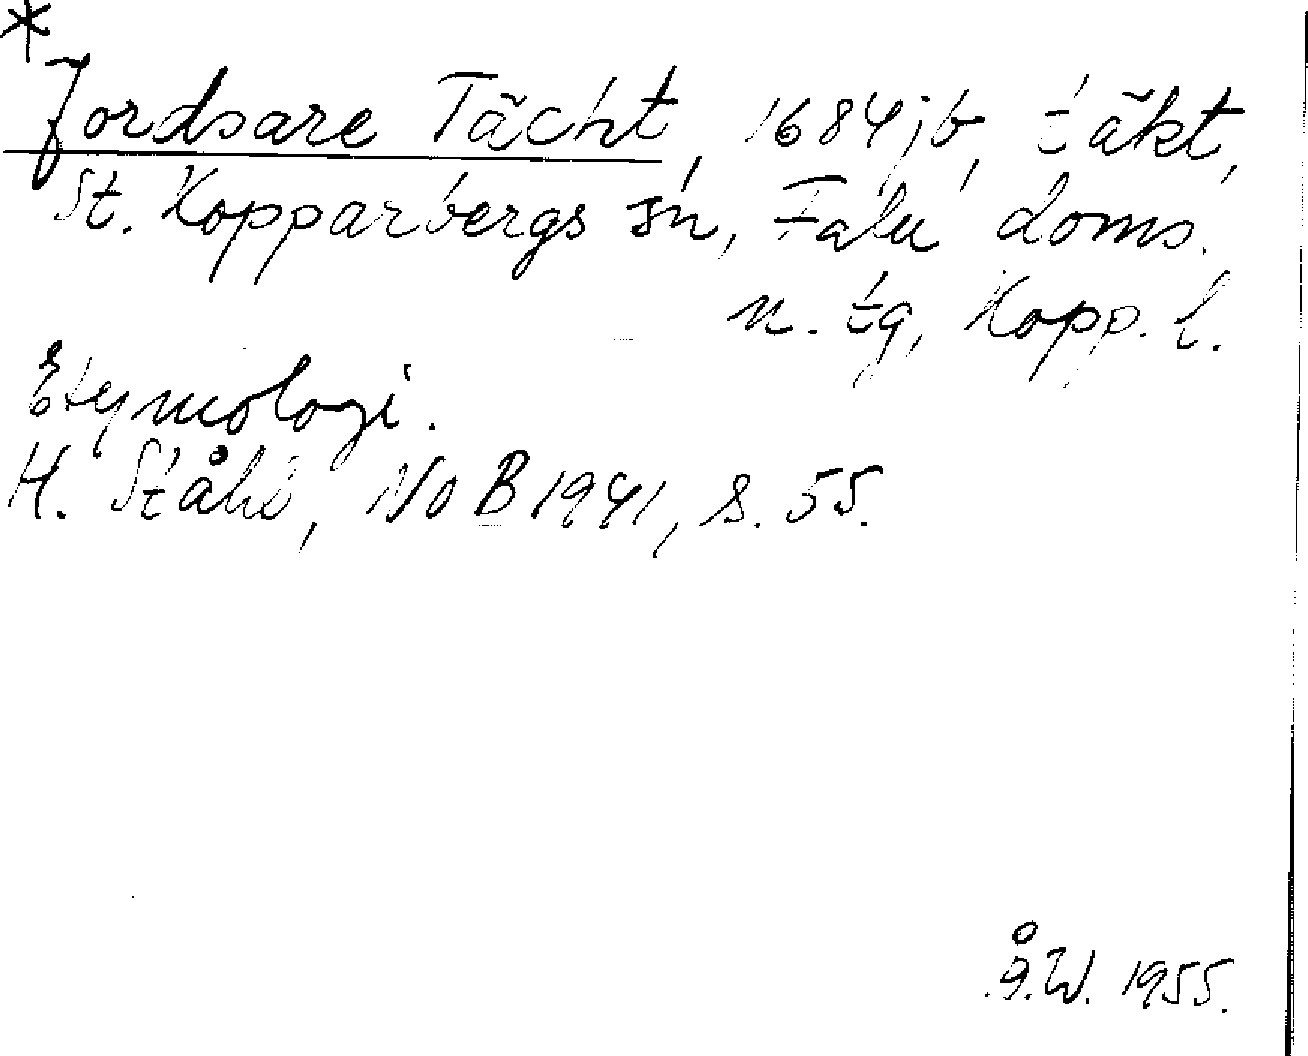 *
Jordsare Tächt, 1684 jb, täkt,
St. Kopparbergs sn, Falu doms.
n. tg, Kopp. l.
Etymologi.
H. Ståhl, NoB 1941, s. 55.
Å.W. 1955.